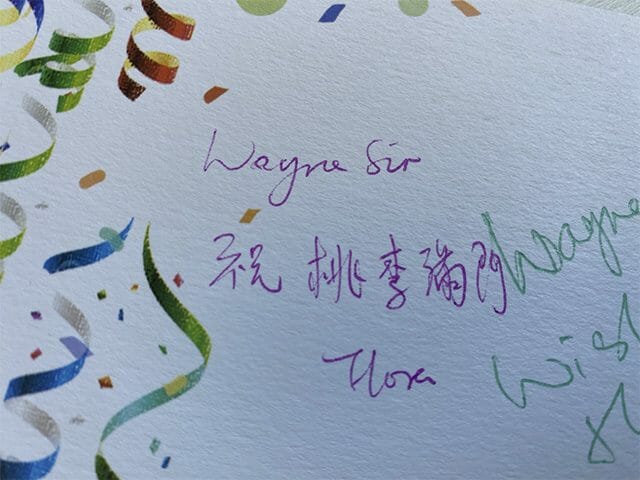 Wayne Sir
祝 桃李滿門
Flora
Wayne
Wis